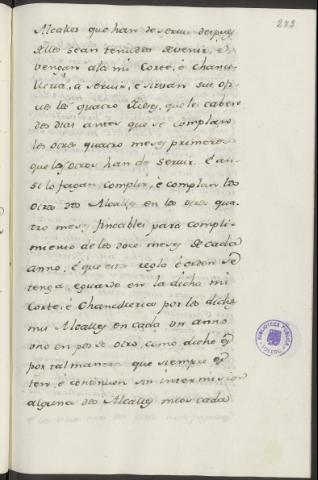 283
Alcaldes que han de servir despues
dellos sean tenudos de venir, é
vengan ala mi Corte, é Chance-
lleria, á servir, é sirvan sus ofi-
cios los quatro Audes, que les cabere
dos dias antes que se complan
los otros quatro meses primeros
que los otros han de servir. É an-
si lo fagan complir, é complan los
otros dos Alcalles en los otros qua-
tro meses fincables para compli-
miento de los doce meses de cada
anno, é que esta regla é orden se
tenga, é guarde en la dicha mi
Corte, é Chancilleria por los dichos
mis Alcalles en cada un anno
uno en pos de otro, como dicho es
por tal manera que siempre es-
ten, é continuen sin intermision
alguna dos Alcalles mios cada
BIBLIOTECA PUBLICA
TOLEDO